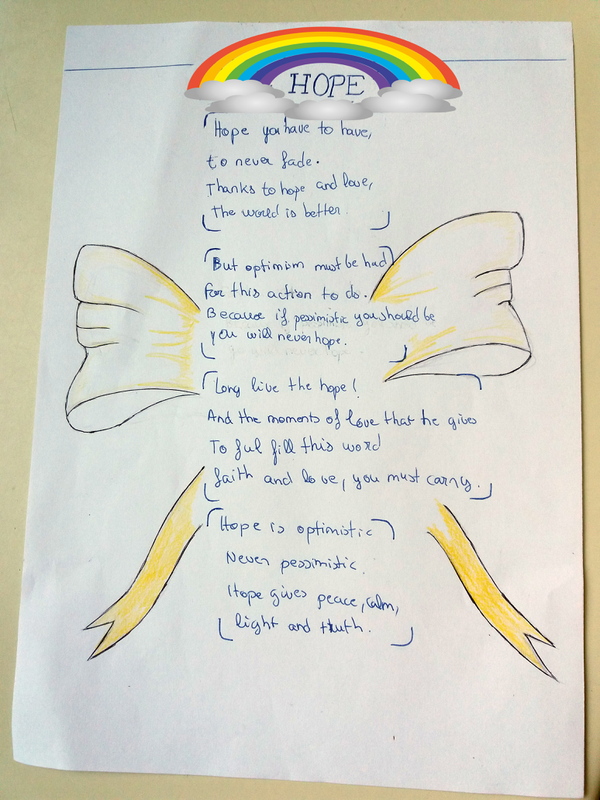 HOPE
Hope you have to have,
to never fade.
Thanks to hope and love,
the world is better.
But optimism must be had
for this action to do.
Because if pessimistic you should be
you will never hope.
Long live the hope!
And the moments of love that he gives
To ful fill this word
faith and love, you must carry.
Hope is optimistic
Never pessimistic.
Hope gives peace, calm,
light and truth.